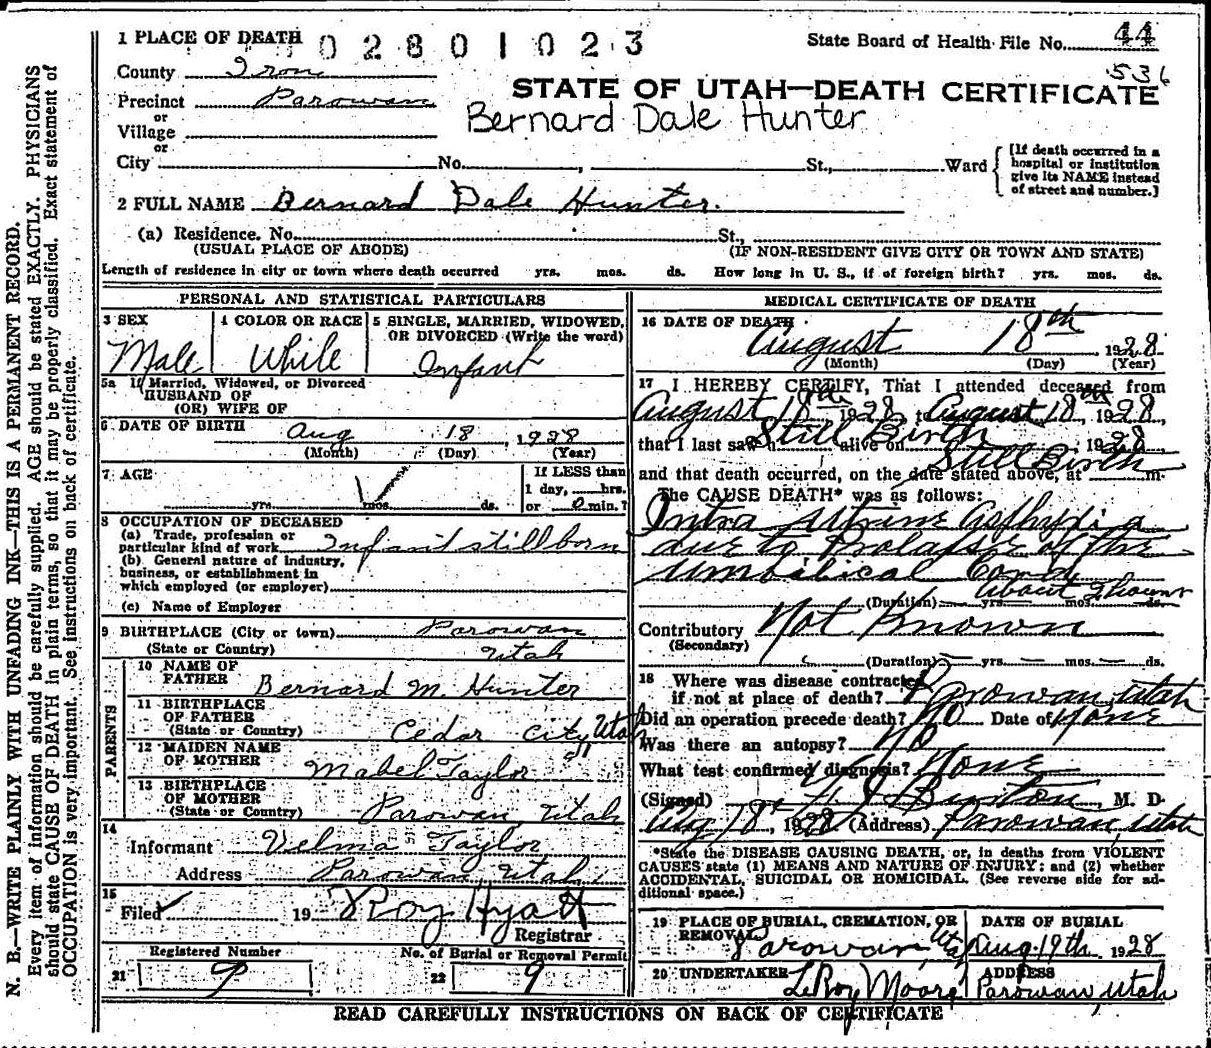 1 PLACE OF DEATH 02801023 State Board of Health File No. 44
County Iron 536
STATE OF UTAH—DEATH CERTIFICATE
Precinct Parowan
or
Village
Bernard Dale Hunter
or
City No. , St., Ward
[If death occurred in a
hospital or institution
give its NAME instead
of street and number.]
2 FULL NAME Bernard Dale Hunter.
(a) Residence. No. St.,
(USUAL PLACE OF ABODE) (IF NON-RESIDENT GIVE CITY OR TOWN AND STATE)
Length of residence in city or town where death occurred yrs. mos. ds. How long in U. S., if of foreign birth? yrs. mos. ds.
PERSONAL AND STATISTICAL PARTICULARS
3 SEX
Male
4 COLOR OR RACE
White
5 SINGLE, MARRIED, WIDOWED,
OR DIVORCED (Write the word)
Infant
5a If Married, Widowed, or Divorced
HUSBAND OF
(OR) WIFE OF
6 DATE OF BIRTH Aug 18, 1928
(Month) (Day) (Year)
7 AGE
yrs. mos. ds.
If LESS than
1 day, hrs.
or 0 min.?
8 OCCUPATION OF DECEASED
(a) Trade, profession or
particular kind of work Infant stillborn
(b) General nature of industry,
business, or establishment in
which employed (or employer)
(c) Name of Employer
9 BIRTHPLACE (City or town) Parowan
(State or Country) Utah
PARENTS
10 NAME OF
FATHER Bernard M. Hunter
11 BIRTHPLACE
OF FATHER
(State or Country) Cedar City Utah
12 MAIDEN NAME
OF MOTHER Mabel Taylor
13 BIRTHPLACE
OF MOTHER
(State or Country) Parowan, Utah
14
Informant Velma Taylor
Address Parowan Utah
15
Filed 19 Roy Hyatt
Registrar
Registered Number No. of Burial or Removal Permit
21 9 22 9
MEDICAL CERTIFICATE OF DEATH
16 DATE OF DEATH
August 18th, 1928
(Month) (Day) (Year)
17 I HEREBY CERTIFY, That I attended deceased from
August 18th 1928, to August 18th, 1928,
that I last saw h alive on Still Birth 1928
and that death occurred, on the date stated above, at Still Birth m.
The CAUSE DEATH* was as follows:
Intra utrine asphyxia
due to Prolapse of the
umbilical Cord
About 2 hours
(Duration) yrs. mos. ds.
Contributory Not Known
(Secondary)
(Duration) yrs. mos. ds.
18 Where was disease contracted
if not at place of death? Parowan, Utah
Did an operation precede death? No Date of None
Was there an autopsy? No
What test confirmed diagnosis? None
(Signed) Burton, M. D.
Aug 18th, 1928 (Address) Parowan, Utah
*State the DISEASE CAUSING DEATH, or, in deaths from VIOLENT
CAUSES state (1) MEANS AND NATURE OF INJURY; and (2) whether
ACCIDENTAL, SUICIDAL OR HOMICIDAL. (See reverse side for ad-
ditional space.)
19 PLACE OF BURIAL, CREMATION, OR
REMOVAL
Parowan, Utah
DATE OF BURIAL
Aug. 19th 1928
20 UNDERTAKER
LeRoy Moore
ADDRESS
Parowan, Utah
READ CAREFULLY INSTRUCTIONS ON BACK OF CERTIFICATE
N. B.—WRITE PLAINLY WITH UNFADING INK—THIS IS A PERMANENT RECORD.
Every item of information should be carefully supplied. AGE should be stated EXACTLY. PHYSICIANS
should state CAUSE OF DEATH in plain terms, so that it may be properly classified. Exact statement of
OCCUPATION is very important. See instructions on back of certificate.